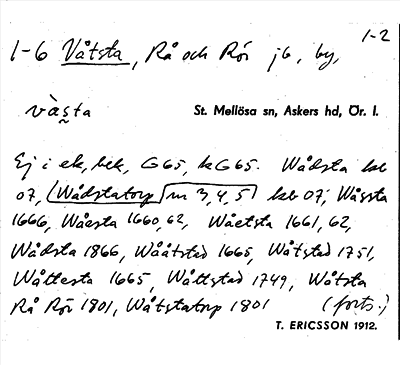 1-2
1-6 Våtsta, Rå och Rör jb, by,
vàsta St. Mellösa sn, Askers hd, Ör. l.
Ej i ek, hek, G65, kG65. Wådsta kb
07, Wådstatorp nr 3, 4, 5 kb 07; Wåssta
1666, Wåesta 1660, 62, Wåetsta 1661, 62,
Wådsta 1866, Wååtstad 1665, Wåtstad 1751,
Wåttesta 1665, Wåttstad 1749, Wåtsta
Rå Rör 1801, Wåtstatorp 1801 (forts.)
T. ERICSSON 1912.